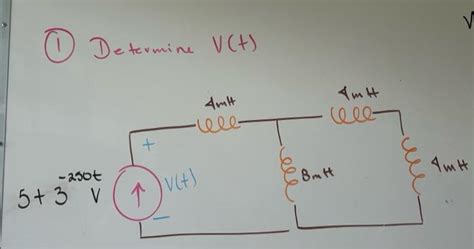 ① Determine V(t)
4mH
4mH
+
V(t)
8mH
4mH
5+3^-250t V
−